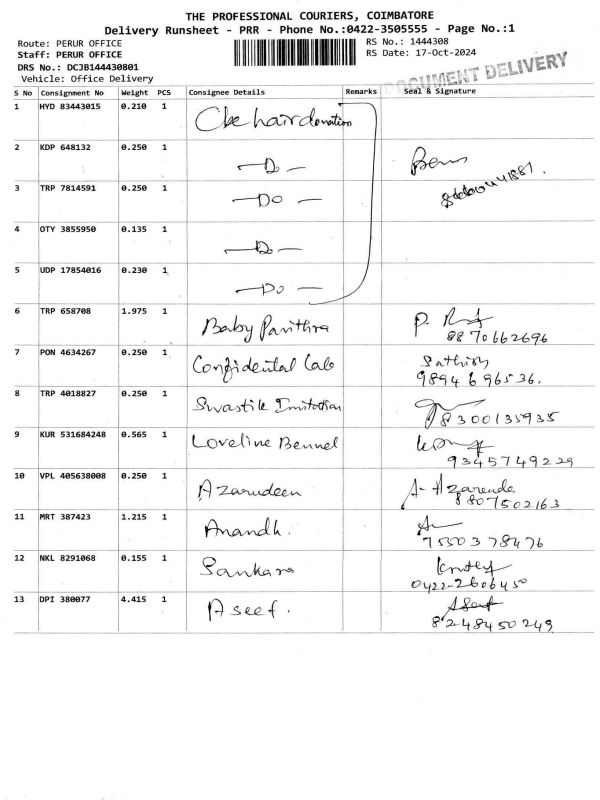 THE PROFESSIONAL COURIERS, COIMBATORE
Delivery Runsheet - PRR - Phone No.:0422-3505555 - Page No.:1
Route: PERUR OFFICE RS No.: 1444308
Staff: PERUR OFFICE RS Date: 17-Oct-2024
DRS No.: DCJB144430801
Vehicle: Office Delivery
DOCUMENT DELIVERY
S No Consignment No Weight PCS Consignee Details Remarks Seal & Signature
1 HYD 83443015 0.210 1 Cbe hair donation
2 KDP 648132 0.250 1 —Do—
3 TRP 7814591 0.250 1 —Do—
4 OTY 3855950 0.135 1 —Do—
5 UDP 17854016 0.230 1 —Do—
6 TRP 658708 1.975 1 Baby Pavithra
8870662696
7 PON 4634267 0.250 1 Confidental Lab Sathish
9894696536.
8 TRP 4018827 0.250 1 Swastik Imitation
8300135935
9 KUR 531684248 0.565 1 Loveline Bennel
9345749229
10 VPL 405638008 0.250 1 Azarudeen
8807502163
11 MRT 387423 1.215 1 Anandh.
7550378476
12 NKL 8291068 0.155 1 Sankara
0422-2606450
13 DPI 380077 4.415 1 Aseef. Aseef
8248450249